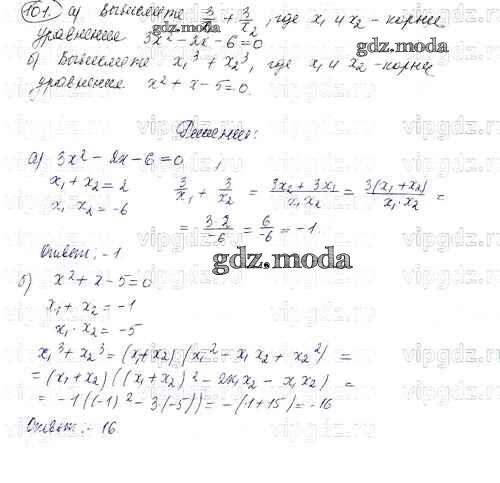 101. а) Вычислите 3/x₁ + 3/x₂, где x₁ и x₂ - корни
уравнения 3x² - 2x - 6 = 0
gdz.moda
б) Вычислите x₁³ + x₂³, где x₁ и x₂ - корни
уравнения x² + x - 5 = 0.
gdz.moda
Решение:
а) 3x² - 2x - 6 = 0,
x₁ + x₂ = 2
x₁ · x₂ = -6
3/x₁ + 3/x₂ = (3x₂ + 3x₁)/(x₁x₂) = 3(x₁ + x₂)/(x₁ · x₂) =
= (3·2)/(-6) = 6/(-6) = -1.
Ответ: -1
gdz.moda
б) x² + x - 5 = 0
x₁ + x₂ = -1
x₁ · x₂ = -5
x₁³ + x₂³ = (x₁ + x₂)(x₁² - x₁x₂ + x₂²) =
= (x₁ + x₂)((x₁ + x₂)² - 2x₁x₂ - x₁x₂) =
= -1((-1)² - 3·(-5)) = -(1 + 15) = -16
Ответ: -16.
vipgdz.com